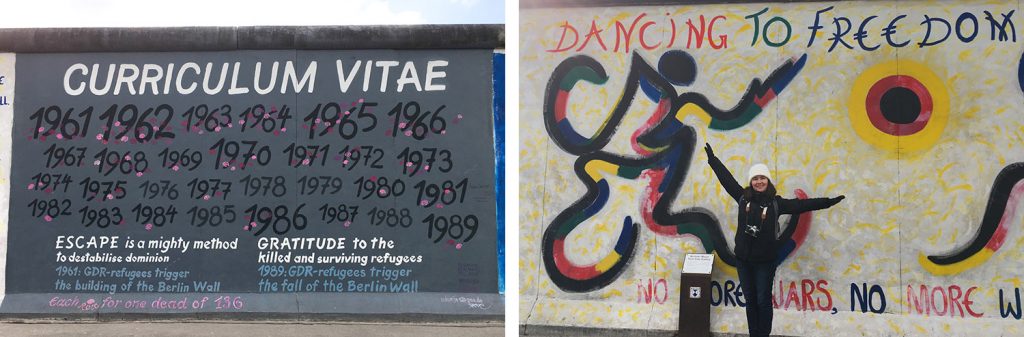 CURRICULUM VITAE
1961 1962 1963 1964 1965 1966
1967 1968 1969 1970 1971 1972 1973
1974 1975 1976 1977 1978 1979 1980 1981
1982 1983 1984 1985 1986 1987 1988 1989
ESCAPE is a mighty method
to destabilise dominion
1961: GDR-refugees trigger
the building of the Berlin Wall
GRATITUDE to the
killed and surviving refugees
1989: GDR-refugees trigger
the fall of the Berlin Wall
for one dead of 136
DANCING TO FREEDOM
NO MORE WARS, NO MORE W